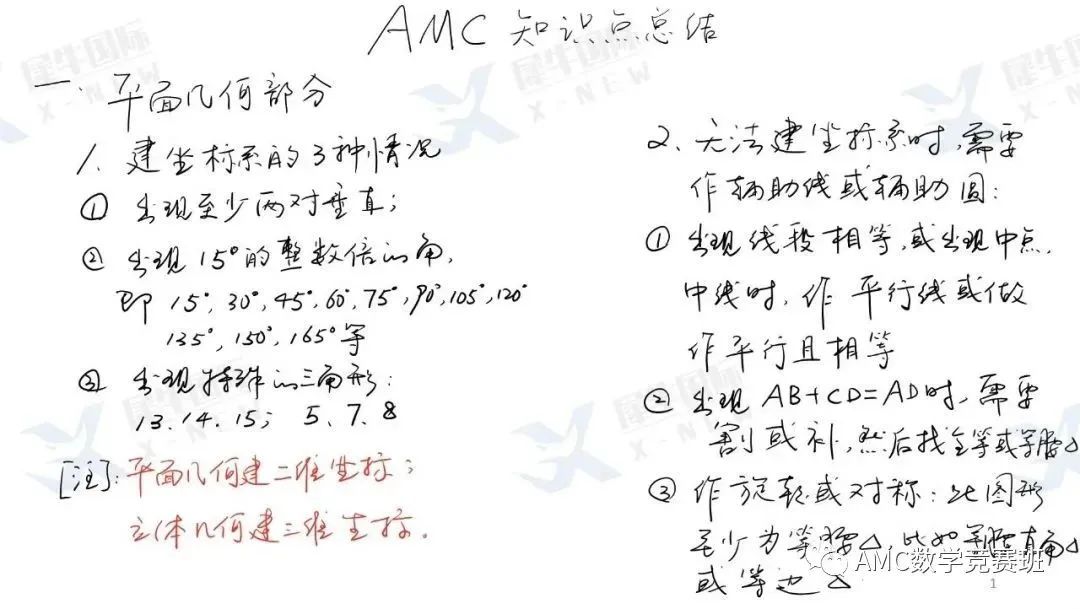 AMC 知识点总结
一、平面几何部分
1. 建坐标系的3种情况
① 出现至少两对垂直;
② 出现15°的整数倍的角,
即 15°, 30°, 45°, 60°, 75°, 90°, 105°, 120°
135°, 150°, 165°等
③ 出现特殊的三角形:
13. 14. 15; 5、7、8
[注]: 平面几何建二维坐标;
立体几何建三维坐标.
2、无法建坐标系时,需要
作辅助线或辅助圆:
① 出现线段相等,或出现中点.
中线时,作平行线或做
作平行且相等
② 出现 AB+CD=AD时,需要
割或补,然后找全等或等腰△
③ 作旋转或对称:此图形
至少为等腰△,比如等腰直角△
或等边△
AMC数学竞赛班
1
犀牛国际
X-NEW
犀牛国际
X-NEW
犀牛国际
X-NEW